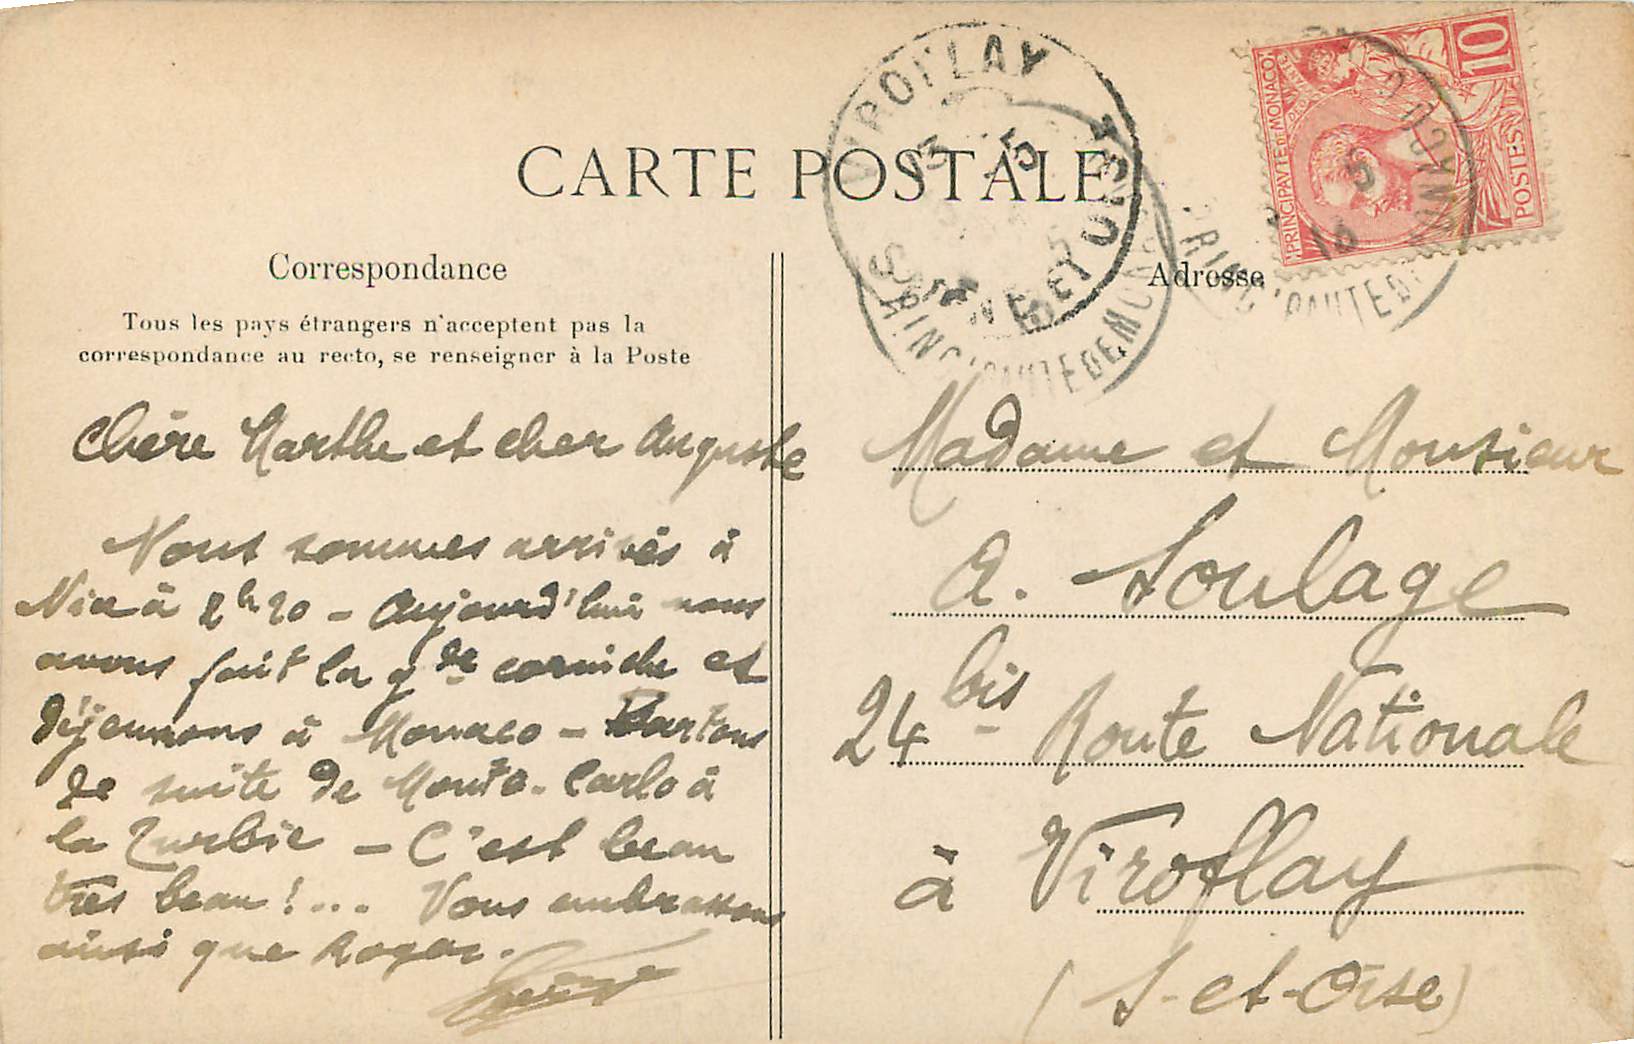 CARTE POSTALE
Correspondance
Tous les pays étrangers n'acceptent pas la
correspondance au recto, se renseigner à la Poste
Chère Marthe et cher Auguste
Nous sommes arrivés à
Nice à 2h20 - Aujourd'hui nous
avons fait la gde corniche et
déjeunons à Monaco - Partons
de suite de Monte-Carlo à
la Turbie - C'est beau
très beau !... Vous embrassons
ainsi que Roger.
Adresse
Madame et Monsieur
A. Soulage
24 bis Route Nationale
à Viroflay
(S-et-Oise)
VIROFLAY
SEINE ET OISE
PRINCIPAUTE DE MONACO
10
PRINCIPAVTE DE MONACO
POSTES
PRINCIPAUTE DE